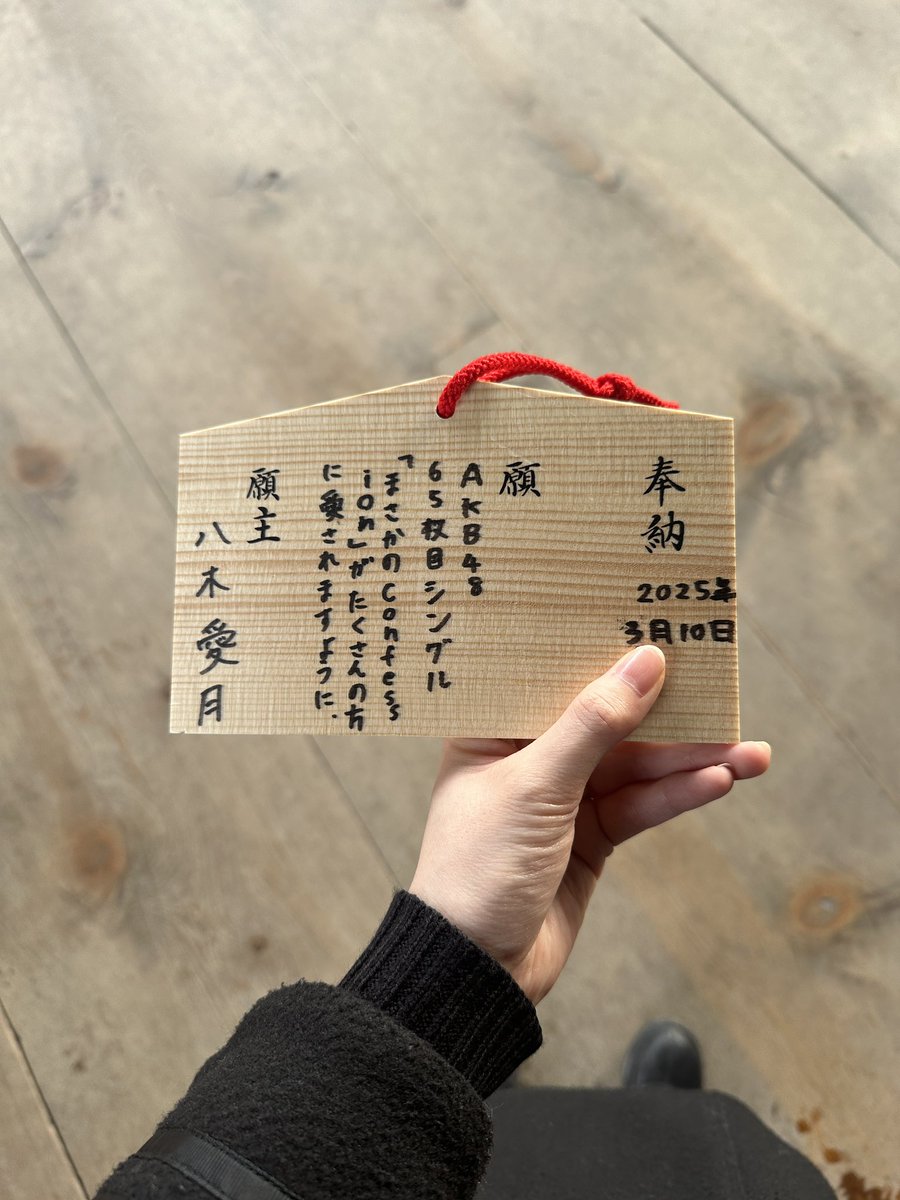 奉納
2025年
3月10日
願
AKB48
65枚目シングル
「まさかのConfess
ion」がたくさんの方
に愛されますように.
願主
八木愛月